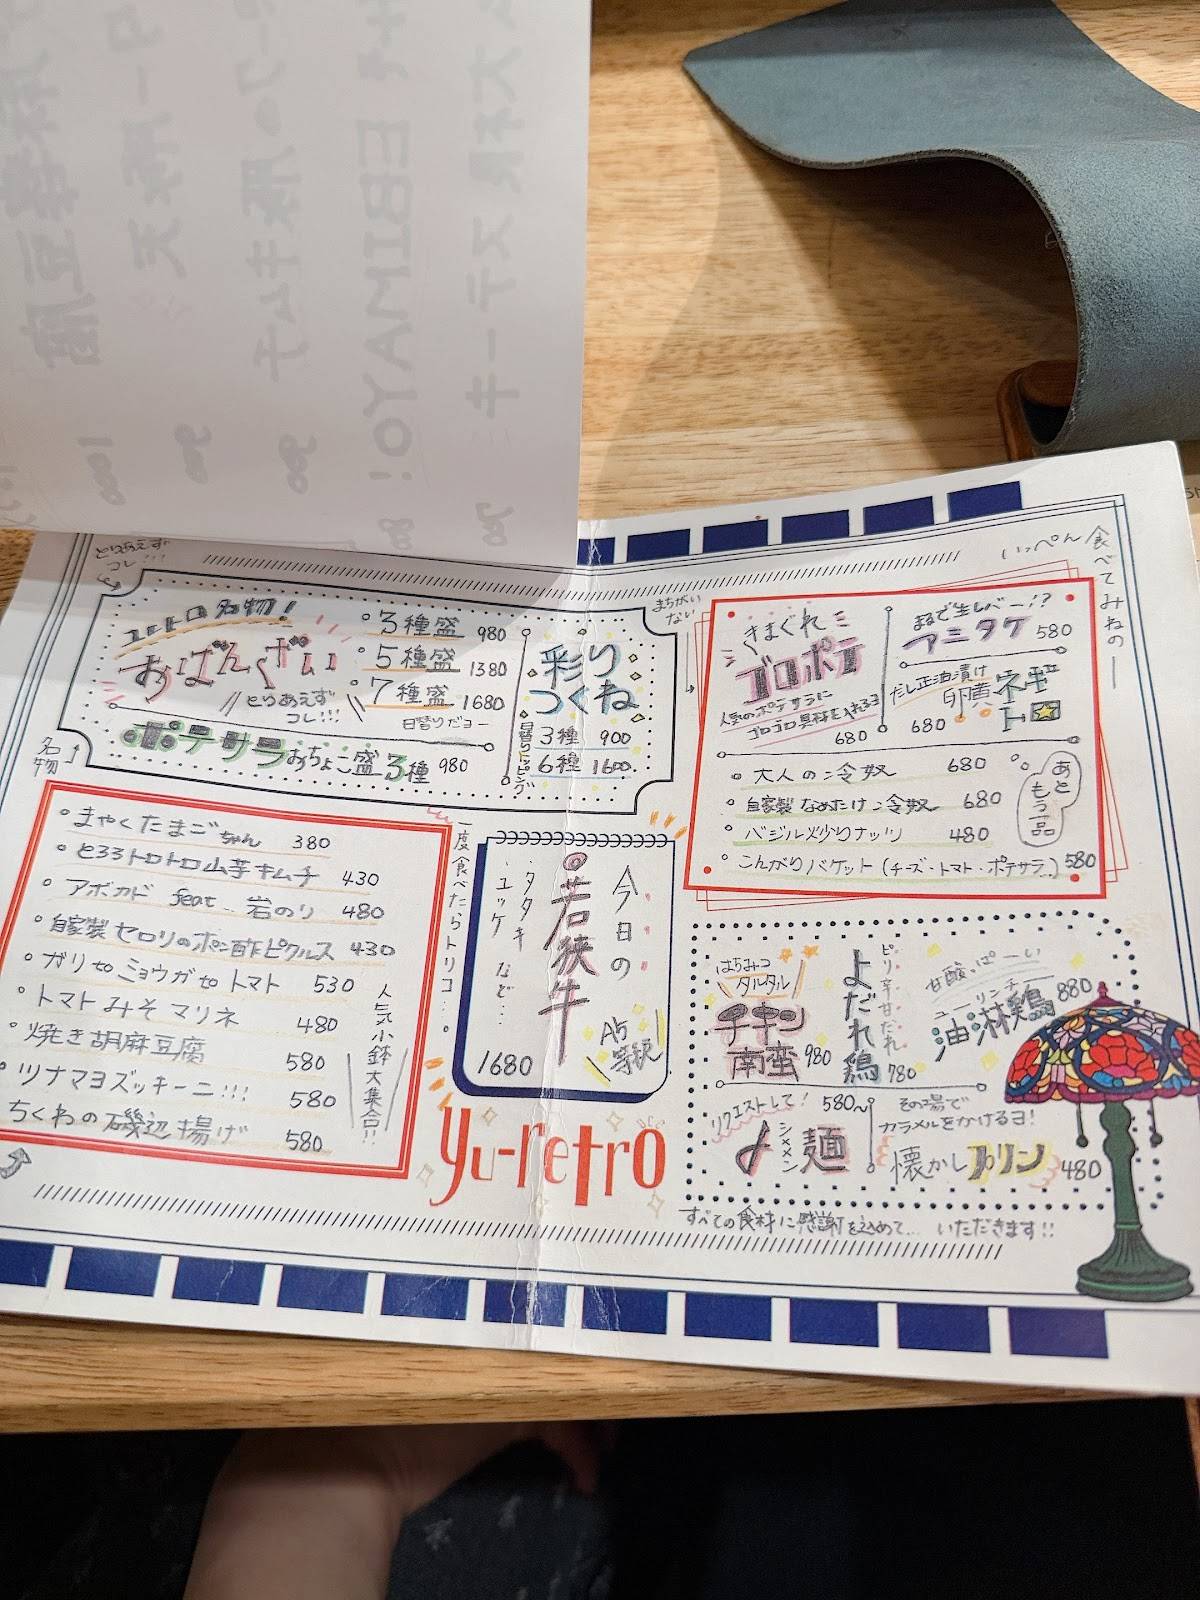 とりあえず
コレ
ユトレトロ名物!
おばんざい
とりあえず
コレ!!!
・3種盛 980
・5種盛 1380
・7種盛 1680
日替りだヨー
ポテサラおちょこ盛3種 980
彩り
つくね
日替りトッピング
3種 900
6種 1600
名物
まちがい
ない
いっぺん食べてみねの
きまぐれ
ゴロポテ
人気のポテサラに
ゴロゴロ具材を入れるヨ
680
まるで生レバー!?
アニタケ 580
だし正油漬け
卵黄
ネギ
ト
680
・大人の冷奴 680
・自家製なめたけ冷奴 680
・バジル炒りナッツ 480
・こんがりバケット(チーズ・トマト・ポテサラ..) 580
あと
もう一品
・まやくたまごちゃん 380
・とろろトロトロ山芋キムチ 430
・アボカド feat.. 岩のり 480
・自家製セロリのポン酢ピクルス 430
・ガリtoミョウガtoトマト 530
・トマトみそマリネ 480
・焼き胡麻豆腐 580
・ツナマヨズッキーニ!!! 580
ちくわの磯辺揚げ 580
人気小鉢大集合!!
一度食べたらトリコ...
今日の
若狭牛
・タタキ
・ユッケ など...
A5
等級
1680
yu-retro
はちみつ
タルタル
チキン
南蛮 980
ピリ辛甘だれ
よだれ鶏 780
甘酸っぱーい
ユーリンチ
油淋鶏 880
リクエストして! 580~
〆
シメメン
麺
その場で
カラメルをかけるヨ!
懐かしプリン 480
すべての食材に感謝を込めて... いただきます!!